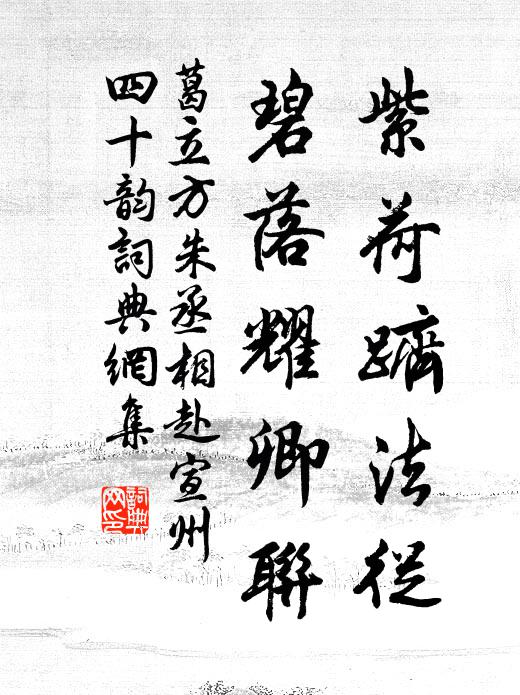 紫荷躋法從
碧落耀卿聯
葛立方朱丞相赴宣州
四十韵詞典網集
詞典網印